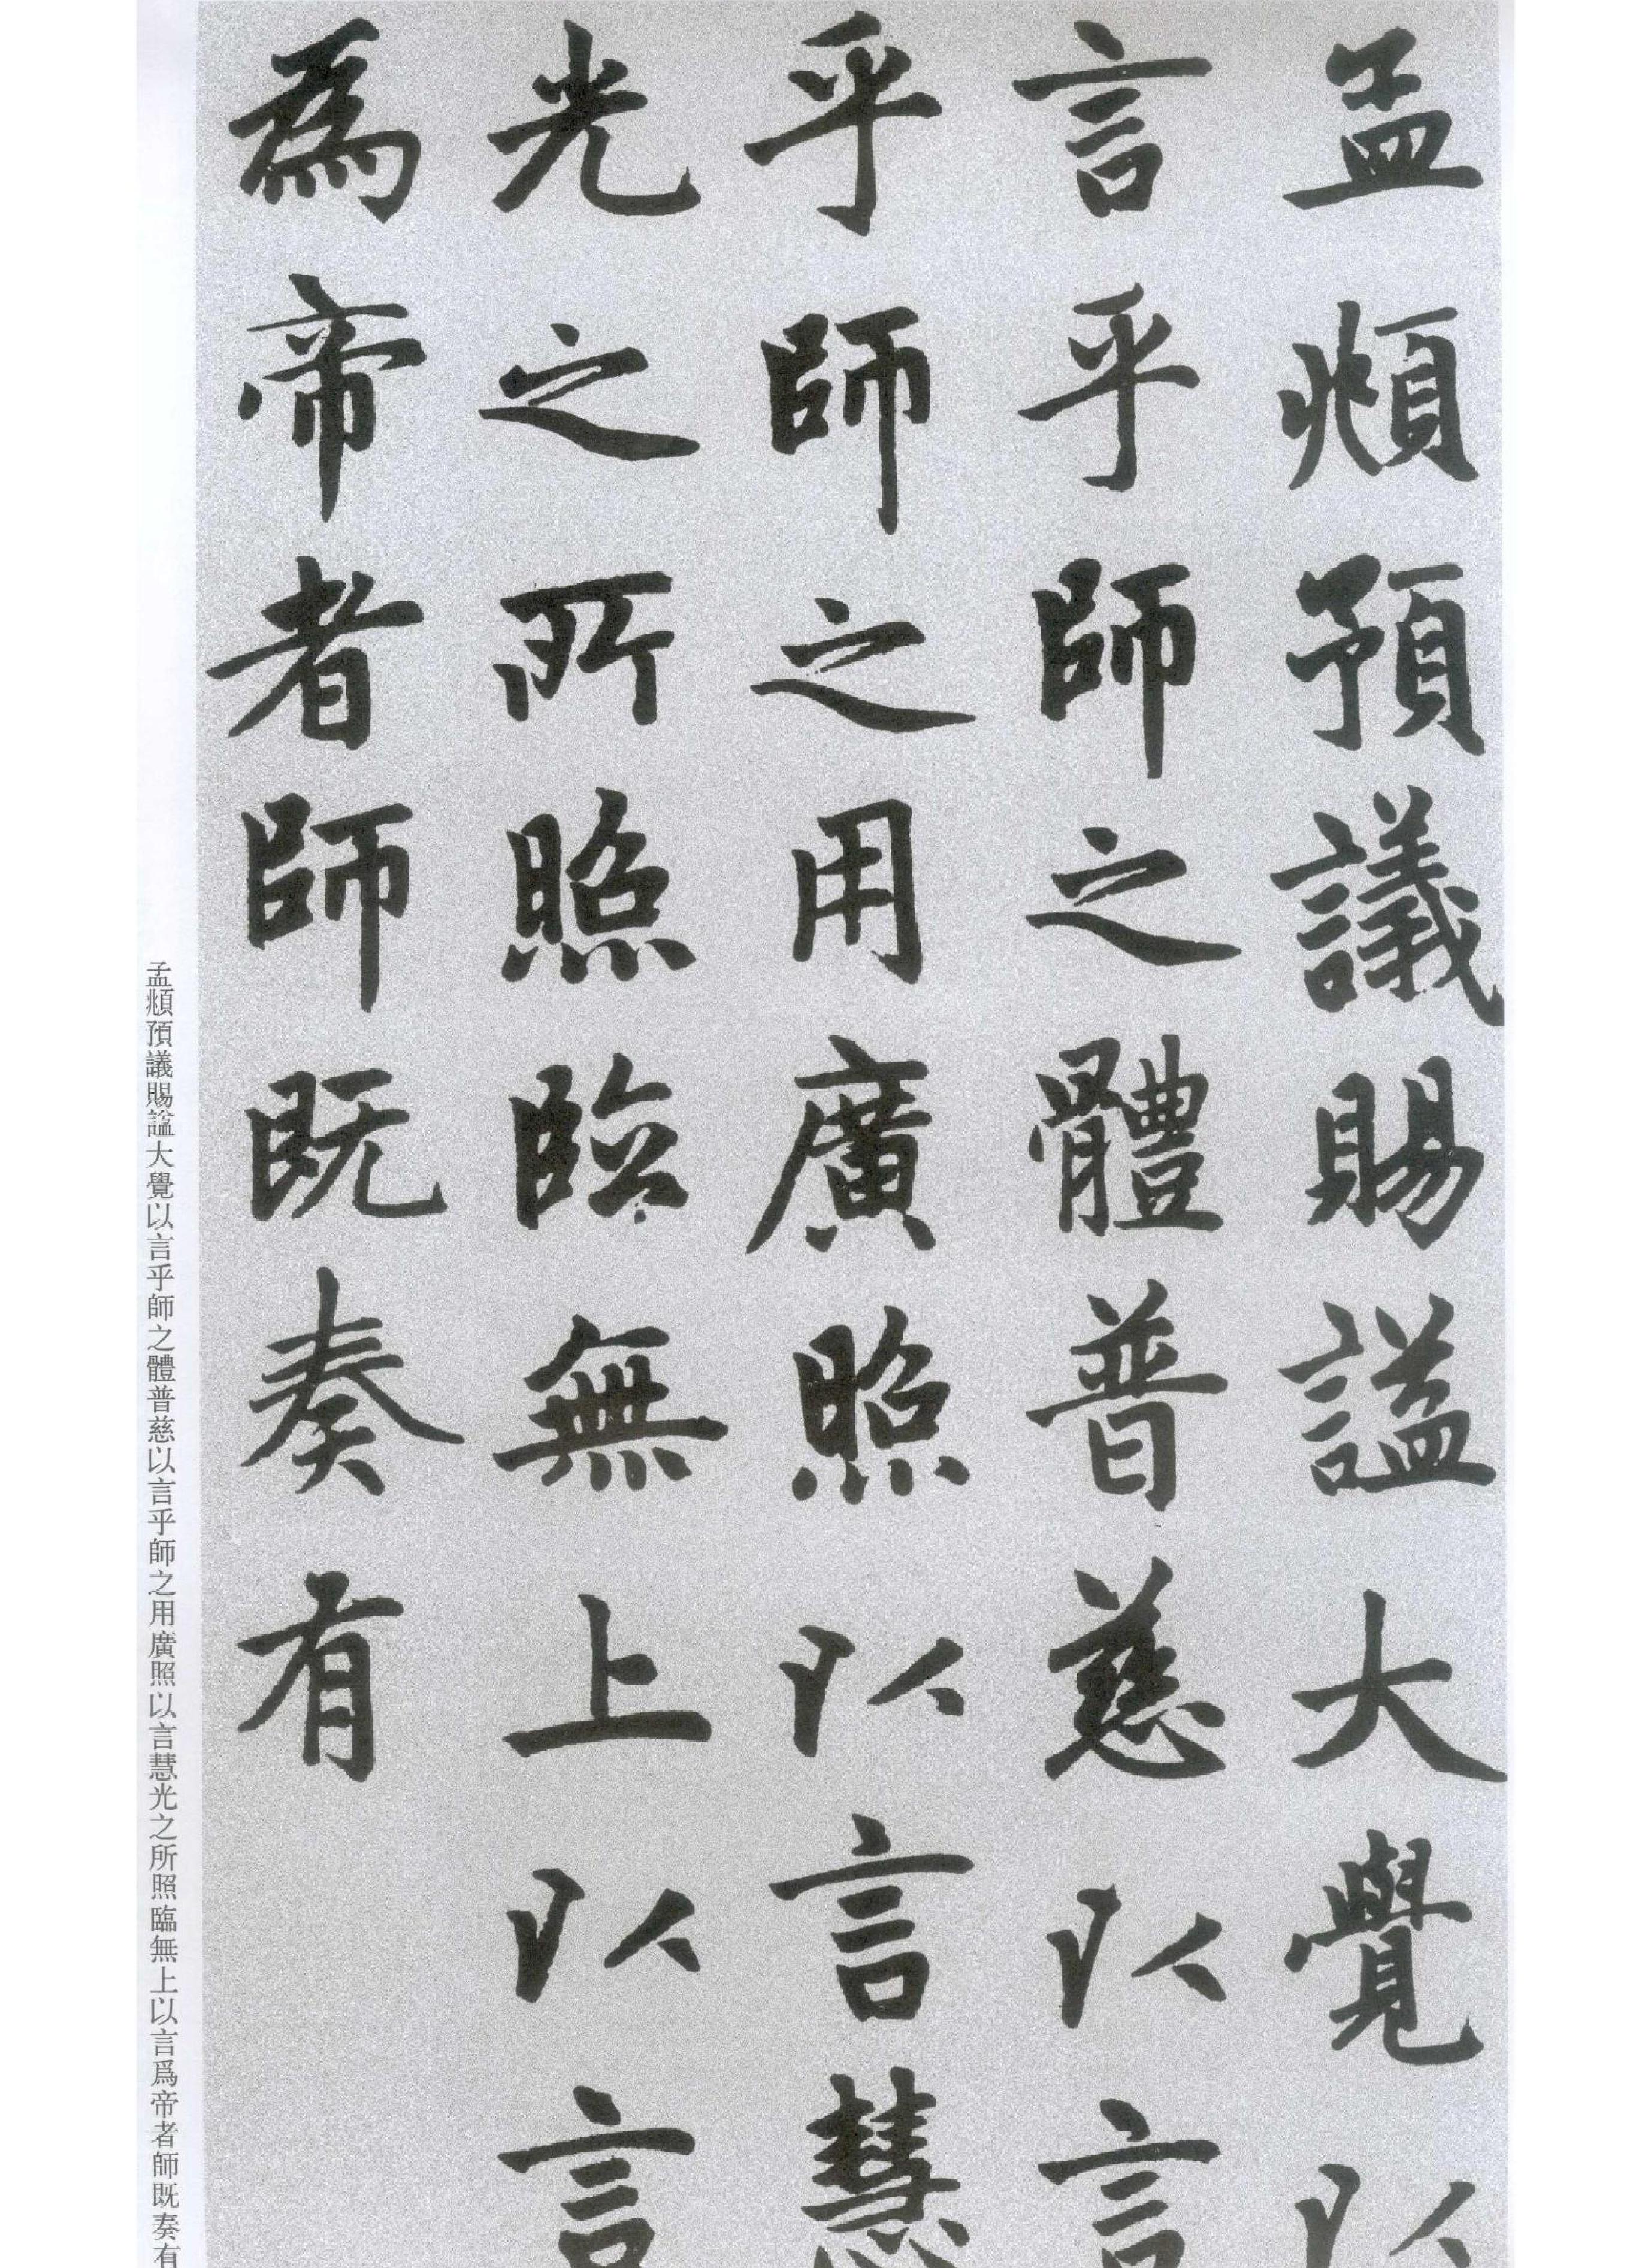 孟頫預議賜諡大覺以
言乎師之體普慈以言
乎師之用廣照以言慧
光之所照臨無上以言
為帝者師既奏有
孟頫預議賜諡大覺以言乎師之體普慈以言乎師之用廣照以言慧光之所照臨無上以言爲帝者師既奏有